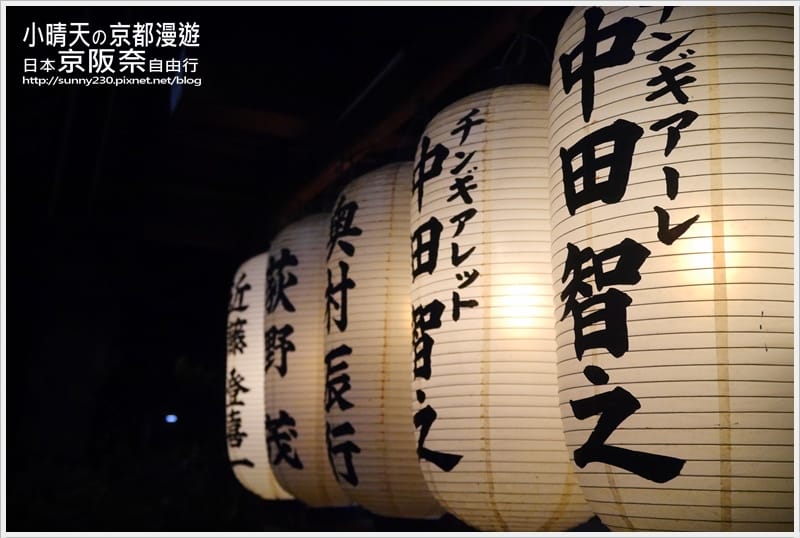 小晴天の京都漫遊
日本京阪奈自由行
http://sunny230.pixnet.net/blog
チンギアーレ
中田智之
チンギアレット
中田智之
奥村辰行
荻野茂
近藤登喜一